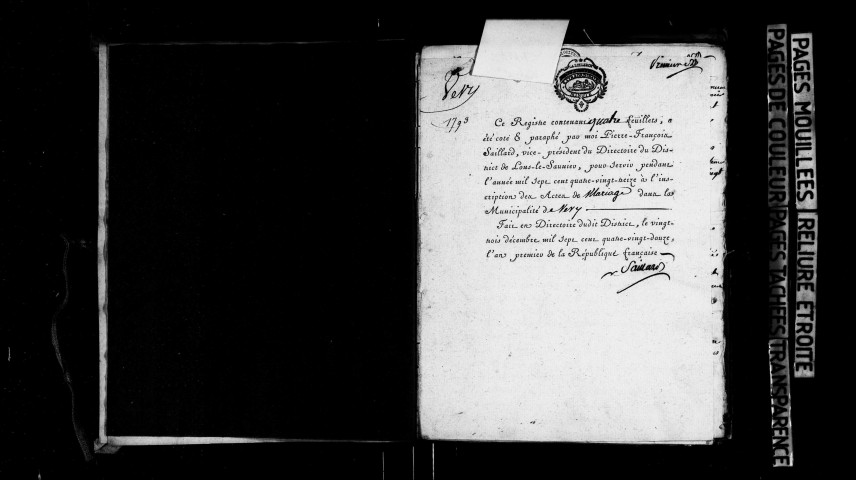 Vevy
1793
Premier
Ce Registre contenant quatre feuillets, a
été coté & paraphé par moi Pierre-François
Saillard, vice-président du Directoire du Dis-
trict de Lons-le-Saunier, pour servir pendant
l'année mil sept cent quatre-vingt-treize à l'ins-
cription des Actes de Mariage dans la
Municipalité de Vevy
Fait en Directoire dudit District, le vingt-
trois décembre mil sept cent quatre-vingt-douze,
l'an premier de la République française
Saillard
PAGES MOUILLEES RELIURE ETROITE
PAGES DE COULEUR PAGES TACHEES TRANSPARENCE